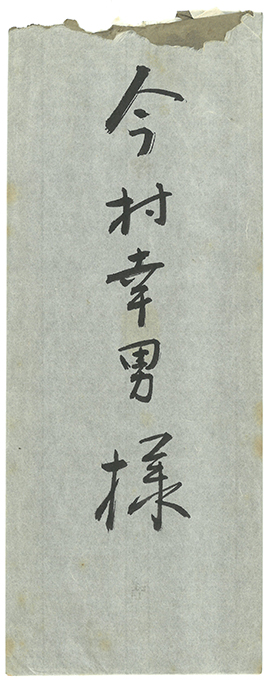 今村幸男様